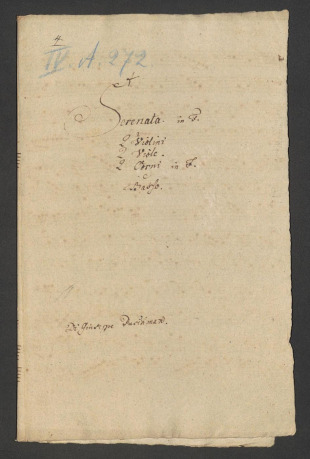 4.
IV A. 272
Serenata in F.
2 Violini
2 Viole.
2 Corni in F.
e
Basso.
Del Giuseppe